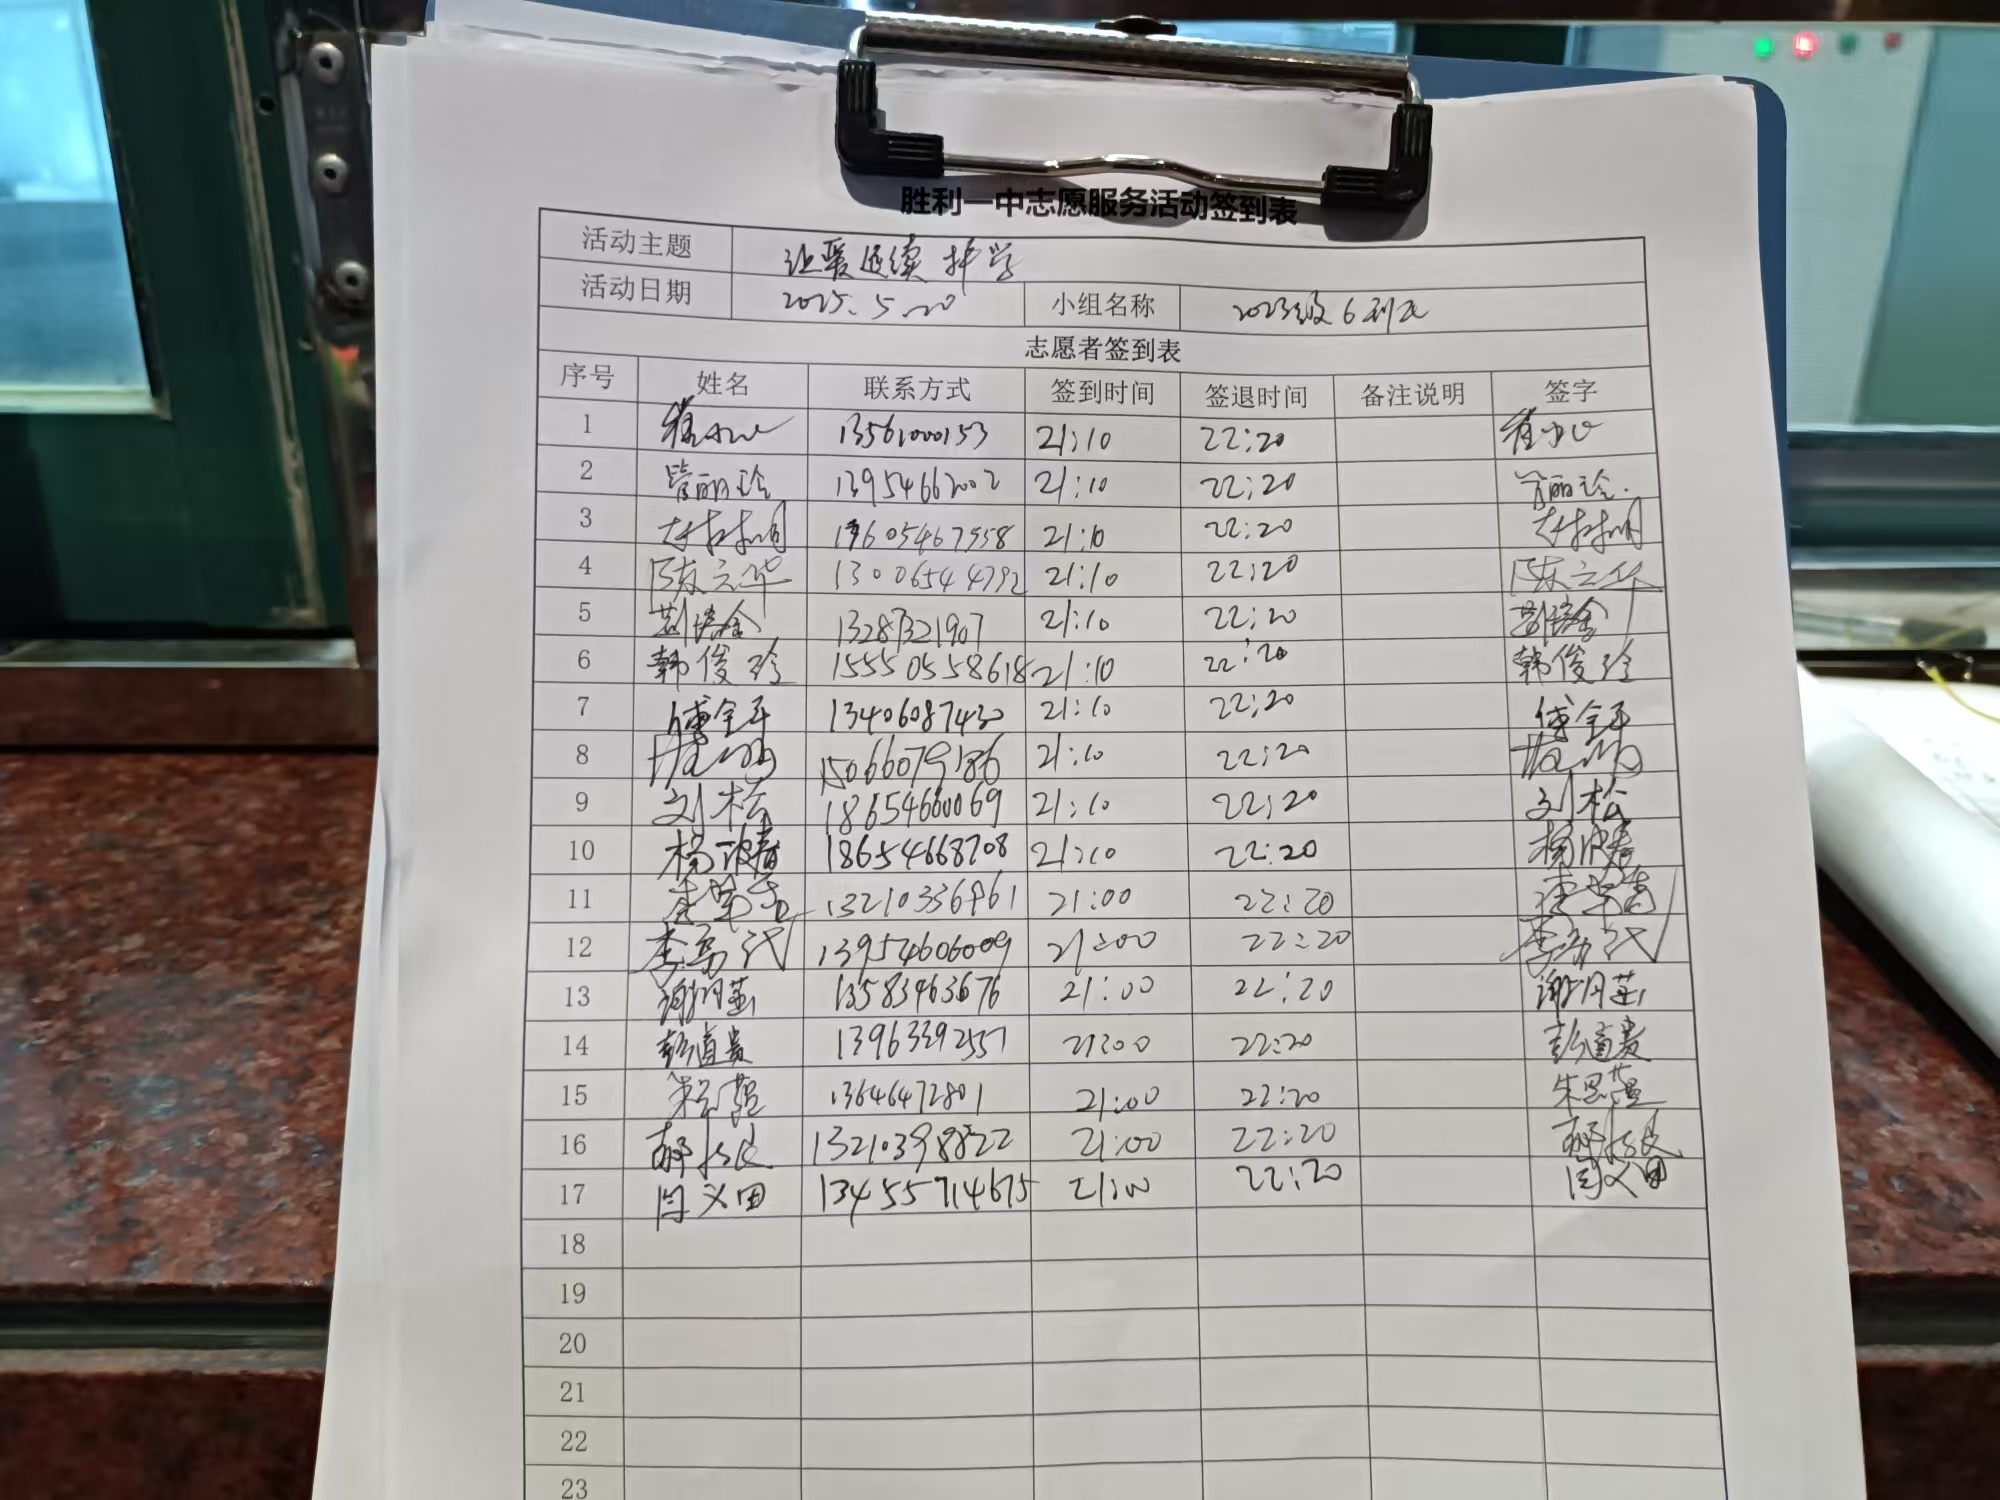 胜利一中志愿服务活动签到表
活动主题 让爱延续 护学
活动日期 2025.5.20 小组名称 2023级6
志愿者签到表
序号 姓名 联系方式 签到时间 签退时间 备注说明 签字
1 13561000153 21:10 22:20
2 管丽玲 13954662002 21:10 22:20 管丽玲.
3 21:10 22:20
4 陈立华 13006544792 21:10 22:20 陈立华
5 13287321907 21:10 22:20
6 韩俊玲 15550558618 21:10 22:20 韩俊玲
7 傅金平 13406087430 21:10 22:20 傅金平
8 15066079186 21:10 22:20
9 刘松 18654660069 21:10 22:20 刘松
10 杨波涛 18654668708 21:10 22:20 杨波涛
11 13210336961 21:00 22:20
12 13954606009 21:00 22:20
13 13583463676 21:00 22:20
14 彭道贵 13963392557 21:00 22:20 彭道贵
15 13646472801 21:00 22:20
16 13210398822 21:00 22:20
17 闫义田 13455714675 21:00 22:20 闫义田
18
19
20
21
22
23